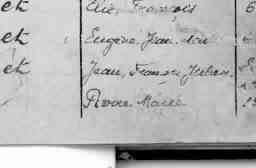 et Elie, François 6
et Eugène, Jean
et Jean, François, Julien
Pierre Marie